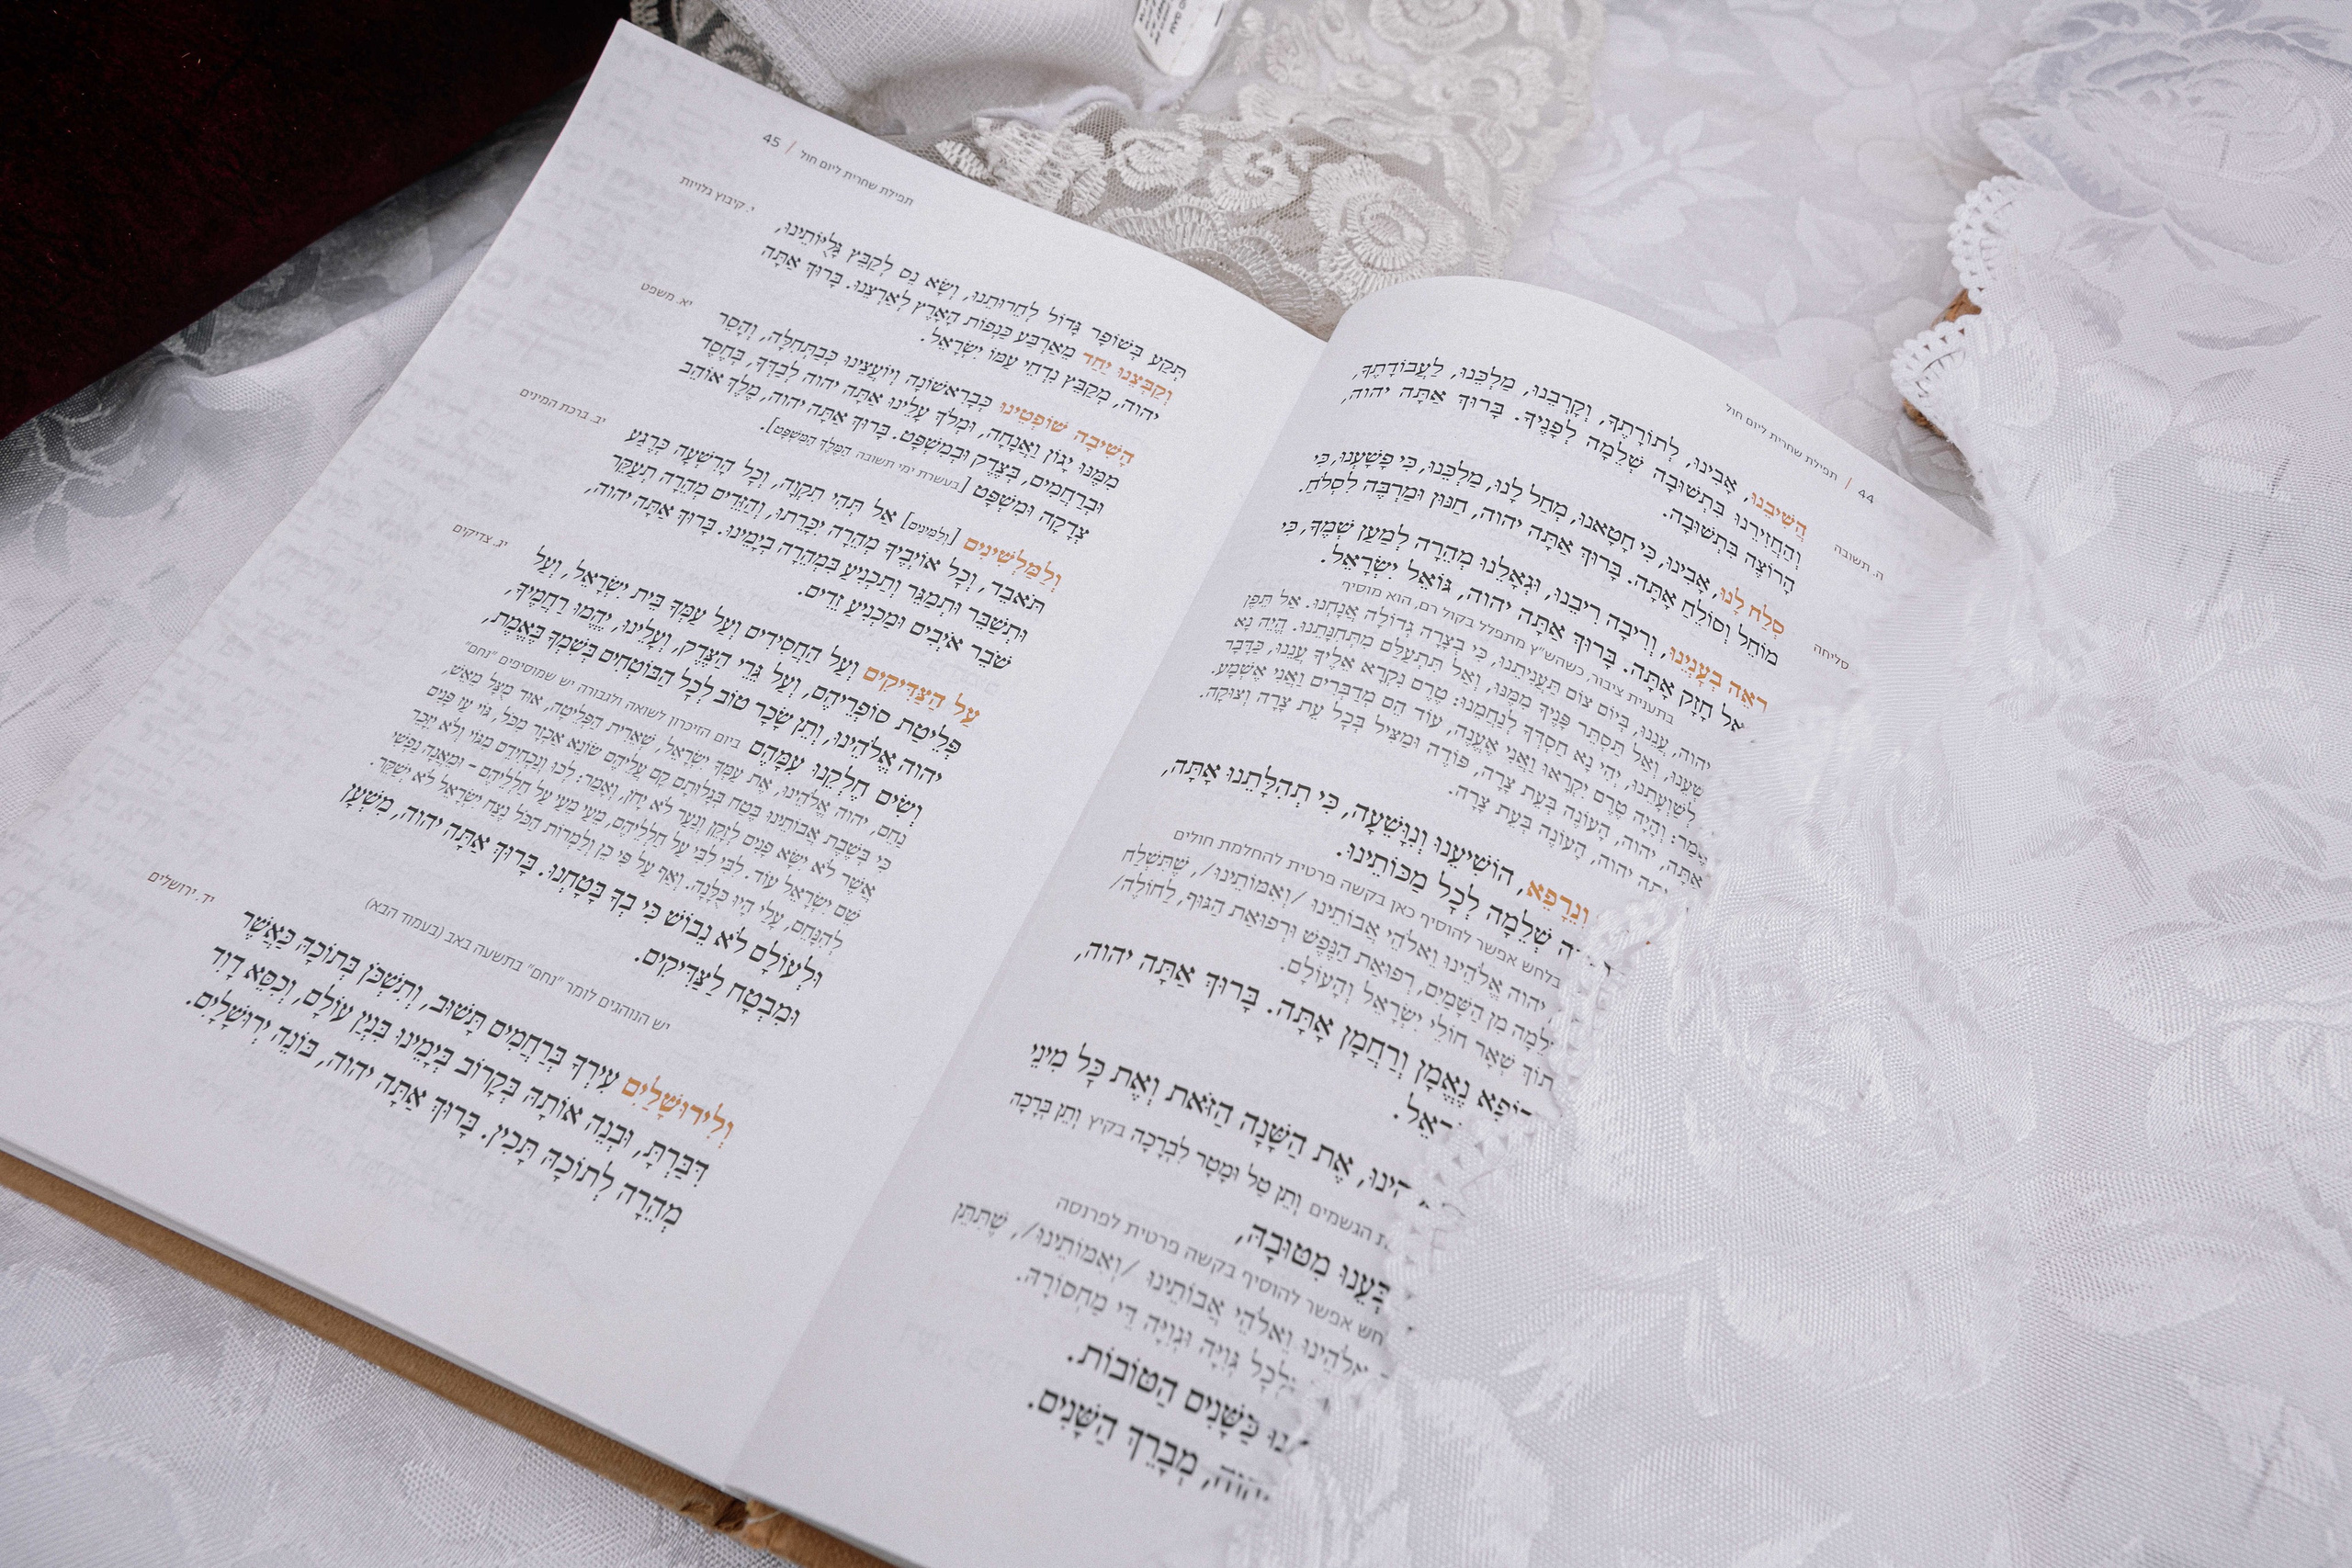 44 | תפילת שחרית ליום חול
ה. תשובה
הֲשִׁיבֵנוּ, אָבִינוּ, לְתוֹרָתֶךָ, וְקָרְבֵנוּ, מַלְכֵּנוּ, לַעֲבוֹדָתֶךָ,
וְהַחֲזִירֵנוּ בִּתְשׁוּבָה שְׁלֵמָה לְפָנֶיךָ. בָּרוּךְ אַתָּה יהוה,
הָרוֹצֶה בִּתְשׁוּבָה.
סליחה
סְלַח לָנוּ, אָבִינוּ, כִּי חָטָאנוּ, מְחַל לָנוּ, מַלְכֵּנוּ, כִּי פָשָׁעְנוּ, כִּי
מוֹחֵל וְסוֹלֵחַ אָתָּה. בָּרוּךְ אַתָּה יהוה, חַנּוּן וּמַרְבֶּה לִסְלֹחַ.
רְאֵה בְעָנְיֵנוּ, וְרִיבָה רִיבֵנוּ, וּגְאָלֵנוּ מְהֵרָה לְמַעַן שְׁמֶךָ, כִּי
אֵל חָזָק אָתָּה. בָּרוּךְ אַתָּה יהוה, גּוֹאֵל יִשְׂרָאֵל.
בתענית ציבור, כשהש״ץ מתפלל בקול רם, הוא מוסיף
יהוה, עֲנֵנוּ, בְּיוֹם צוֹם תַּעֲנִיתֵנוּ, כִּי בְצָרָה גְדוֹלָה אֲנָחְנוּ. אַל תֵּפֶן
שְׁעֵנוּ, וְאַל תַּסְתֵּר פָּנֶיךָ מִמֶּנּוּ, וְאַל תִּתְעַלַּם מִתְּחִנָּתֵנוּ. הֱיֵה נָא
לְשַׁוְעָתֵנוּ, יְהִי נָא חַסְדְּךָ לְנַחֲמֵנוּ: טֶרֶם נִקְרָא אֵלֶיךָ עֲנֵנוּ, כַּדָּבָר
אֱמַר: וְהָיָה טֶרֶם יִקְרָאוּ וַאֲנִי אֶעֱנֶה, עוֹד הֵם מְדַבְּרִים וַאֲנִי אֶשְׁמָע.
אַתָּה, יהוה, הָעוֹנֶה בְּעֵת צָרָה, פּוֹדֶה וּמַצִּיל בְּכָל עֵת צָרָה וְצוּקָה.
תָּה יהוה, הָעוֹנֶה בְּעֵת צָרָה.
וְנֵרָפֵא, הוֹשִׁיעֵנוּ וְנִוָּשֵׁעָה, כִּי תְהִלָּתֵנוּ אָתָּה,
ה שְׁלֵמָה לְכָל מַכּוֹתֵינוּ.
בלחש אפשר להוסיף כאן בקשה פרטית להחלמת חולים
יהוה אֱלֹהֵינוּ וֵאלֹהֵי אֲבוֹתֵינוּ /וְאִמּוֹתֵינוּ/, שֶׁתִּשְׁלַח
לֵמָה מִן הַשָּׁמַיִם, רְפוּאַת הַנֶּפֶשׁ וּרְפוּאַת הַגּוּף, לַחוֹלֶה/
תוֹךְ שְׁאָר חוֹלֵי יִשְׂרָאֵל וְהָעוֹלָם.
רוֹפֵא נֶאֱמָן וְרַחֲמָן אָתָּה. בָּרוּךְ אַתָּה יהוה,
רָאֵל.
הֵינוּ, אֶת הַשָּׁנָה הַזֹּאת וְאֶת כָּל מִינֵי
ת הגשמים וְתֵן טַל וּמָטָר לִבְרָכָה בקיץ וְתֵן בְּרָכָה
בְּעֵנוּ מִטּוּבָהּ,
חש אפשר להוסיף בקשה פרטית לפרנסה
אֱלֹהֵינוּ וֵאלֹהֵי אֲבוֹתֵינוּ /וְאִמּוֹתֵינוּ/, שֶׁתִּתֵּן
לְכָל גְּוִיָּה וּגְוִיָּה דֵּי מַחְסוֹרָהּ.
נוּ כַּשָּׁנִים הַטּוֹבוֹת.
יהוה, מְבָרֵךְ הַשָּׁנִים.
תפילת שחרית ליום חול | 45
י. קיבוץ גלויות
תְּקַע בְּשׁוֹפָר גָּדוֹל לְחֵרוּתֵנוּ, וְשָׂא נֵס לְקַבֵּץ גָּלֻיּוֹתֵינוּ,
וְקַבְּצֵנוּ יַחַד מֵאַרְבַּע כַּנְפוֹת הָאָרֶץ לְאַרְצֵנוּ. בָּרוּךְ אַתָּה
יהוה, מְקַבֵּץ נִדְחֵי עַמּוֹ יִשְׂרָאֵל.
יא. משפט
הָשִׁיבָה שׁוֹפְטֵינוּ כְּבָרִאשׁוֹנָה וְיוֹעֲצֵינוּ כְּבַתְּחִלָּה, וְהָסֵר
מִמֶּנּוּ יָגוֹן וַאֲנָחָה, וּמְלֹךְ עָלֵינוּ אַתָּה יהוה לְבַדְּךָ, בְּחֶסֶד
וּבְרַחֲמִים, בְּצֶדֶק וּבְמִשְׁפָּט. בָּרוּךְ אַתָּה יהוה, מֶלֶךְ אוֹהֵב
צְדָקָה וּמִשְׁפָּט [בעשרת ימי תשובה הַמֶּלֶךְ הַמִּשְׁפָּט].
יב. ברכת המינים
וְלַמַּלְשִׁינִים [וְלַמִּינִים] אַל תְּהִי תִקְוָה, וְכָל הָרִשְׁעָה כְּרֶגַע
תֹּאבֵד, וְכָל אוֹיְבֶיךָ מְהֵרָה יִכָּרֵתוּ, וְהַזֵּדִים מְהֵרָה תְעַקֵּר
וּתְשַׁבֵּר וּתְמַגֵּר וְתַכְנִיעַ בִּמְהֵרָה בְיָמֵינוּ. בָּרוּךְ אַתָּה יהוה,
שֹׁבֵר אֹיְבִים וּמַכְנִיעַ זֵדִים.
יג. צדיקים
עַל הַצַּדִּיקִים וְעַל הַחֲסִידִים וְעַל עַמְּךָ בֵּית יִשְׂרָאֵל, וְעַל
פְּלֵיטַת סוֹפְרֵיהֶם, וְעַל גֵּרֵי הַצֶּדֶק, וְעָלֵינוּ, יֶהֱמוּ רַחֲמֶיךָ,
יהוה אֱלֹהֵינוּ, וְתֵן שָׂכָר טוֹב לְכָל הַבּוֹטְחִים בְּשִׁמְךָ בֶּאֱמֶת,
וְשִׂים חֶלְקֵנוּ עִמָּהֶם ביום הזיכרון לשואה ולגבורה יש שמוסיפים ״נחם״
נַחֵם, יהוה אֱלֹהֵינוּ, אֶת עַמְּךָ יִשְׂרָאֵל, שְׁאֵרִית הַפְּלֵיטָה, אוּד מֻצָּל מֵאֵשׁ,
כִּי בְּשֶׁבֶת אֲבוֹתֵינוּ בֶּטַח בְּגָלוּתָם קָם עֲלֵיהֶם שׂוֹנֵא אַכְזָר מִכֹּל, גּוֹי עַז פָּנִים
אֲשֶׁר לֹא יִשָּׂא פָנִים לְזָקֵן וְנַעַר לֹא יָחֹן, וְאָמַר: לְכוּ וְנַכְחִידֵם מִגּוֹי וְלֹא יִזָּכֵר
שֵׁם יִשְׂרָאֵל עוֹד. לִבִּי לִבִּי עַל חַלְלֵיהֶם, מֵעַי מֵעַי עַל חַלְלֵיהֶם – וּמֵאֲנָה נַפְשִׁי
לְהִנָּחֵם, עָלַי הָיוּ כֻלָּנָה. וְאַף עַל פִּי כֵן וְלַמְרוֹת הַכֹּל נֵצַח יִשְׂרָאֵל לֹא יְשַׁקֵּר.
וּלְעוֹלָם לֹא נֵבוֹשׁ כִּי בְךָ בָּטָחְנוּ. בָּרוּךְ אַתָּה יהוה, מִשְׁעָן
וּמִבְטָח לַצַּדִּיקִים.
יש הנוהגים לומר ״נחם״ בתשעה באב (בעמוד הבא)
יד. ירושלים
וְלִירוּשָׁלַיִם עִירְךָ בְּרַחֲמִים תָּשׁוּב, וְתִשְׁכֹּן בְּתוֹכָהּ כַּאֲשֶׁר
דִּבַּרְתָּ, וּבְנֵה אוֹתָהּ בְּקָרוֹב בְּיָמֵינוּ בִּנְיַן עוֹלָם, וְכִסֵּא דָוִד
מְהֵרָה לְתוֹכָהּ תָּכִין. בָּרוּךְ אַתָּה יהוה, בּוֹנֵה יְרוּשָׁלָיִם.